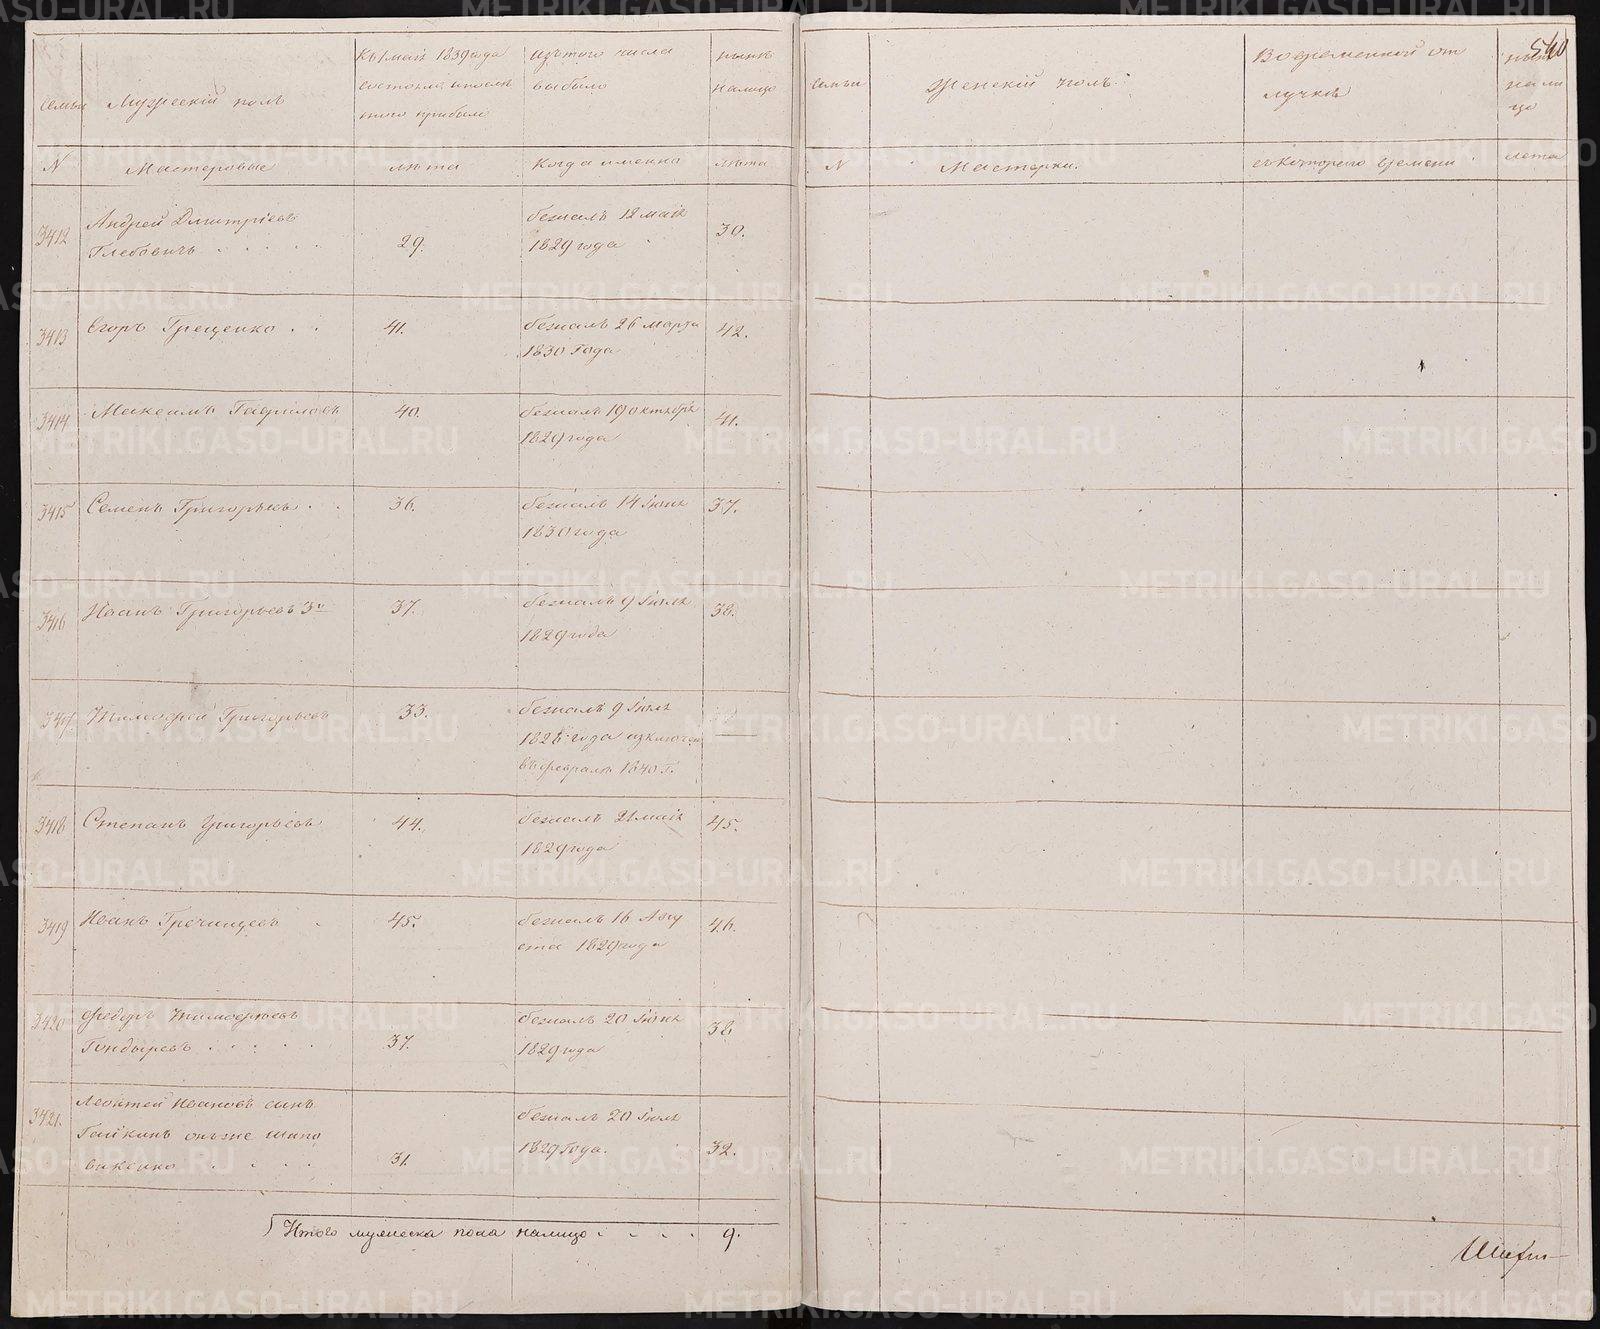 540
Семьи
Мужескій полъ
Къ 1 маія 1839 года
состояло, и послѣ
того прибыло
Изъ того числа
выбыло
нынѣ
налицо
Семьи
Женскій полъ.
Во временной от
лучкѣ
ныне
на ли
цо
N
Мастеровые
лѣта
Когда именно
лѣта
N
Мастерки.
съ котораго времени
лета
3412
Андрей Дмитріевъ
Глебовичь . . . . .
29.
бежалъ 12 маія
1829 года
30.
3413
Егоръ Грещенко . .
41.
бежалъ 26 марта
1830 Года
42.
3414
Максимъ Гавриловъ
40.
бежалъ 19 октября
1829 года
41.
3415
Семенъ Григорьевъ . .
36.
бежалъ 14 Іюня
1830 года
37.
3416
Иванъ Григорьевъ 3й
37.
бежалъ 9 Іюля
1829 года
38.
3417
Тимофей Григорьевъ
33.
бежалъ 9 Іюля
1828 года изключен
въ февралѣ 1840 г.
3418
Степанъ Григорьевъ
44.
бежалъ 21 маія
1829 года
45.
3419
Иванъ Гречинцевъ .
45.
бежалъ 16 Авгу
ста 1829 года
46.
3420
Федоръ Тимофеевъ
Гондыревъ . . . . .
37.
бежалъ 20 Іюня
1829 года
38
3421.
Леонтей Ивановъ сынъ
Гайкинъ онъ же Шапо
виленко . . . .
31.
бежалъ 20 Іюля
1829 Года.
32.
Итого мужеска пола налицо . . . .
9.
METRIKI.GASO-URAL.RU